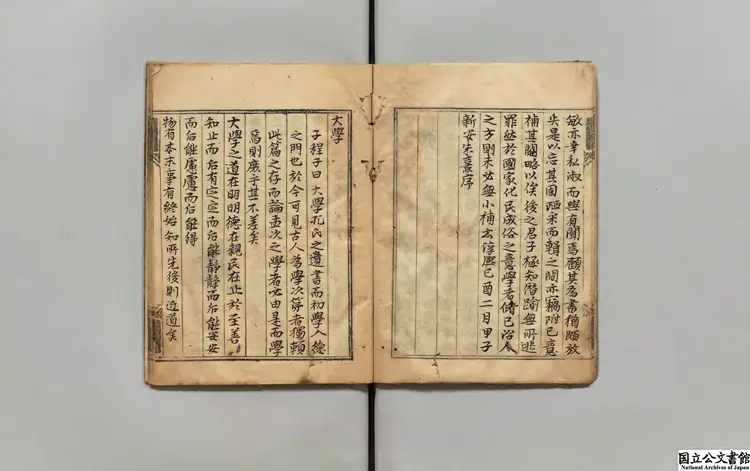 敏亦幸私淑而與有聞焉顧其為書猶頗放
失是以忘其固陋采而輯之間亦竊附已意
補其闕略以俟後之君子極知僭踰無所逃
罪然於國家化民成俗之意學者脩已治人
之方則未必無小補云淳熙已酉二月甲子
新安朱熹序
大學
子程子曰大學孔氏之遺書而初學入德
之門也於今可見古人為學次第者獨賴
此篇之存而論孟次之學者必由是而學
焉則庶乎其不差矣
大學之道在明明德在親民在止於至善
知止而后有定定而后能静静而后能安安
而后能慮慮而后能得
物有本末事有終始知所先後則近道矣
国立公文書館
National Archives of Japan